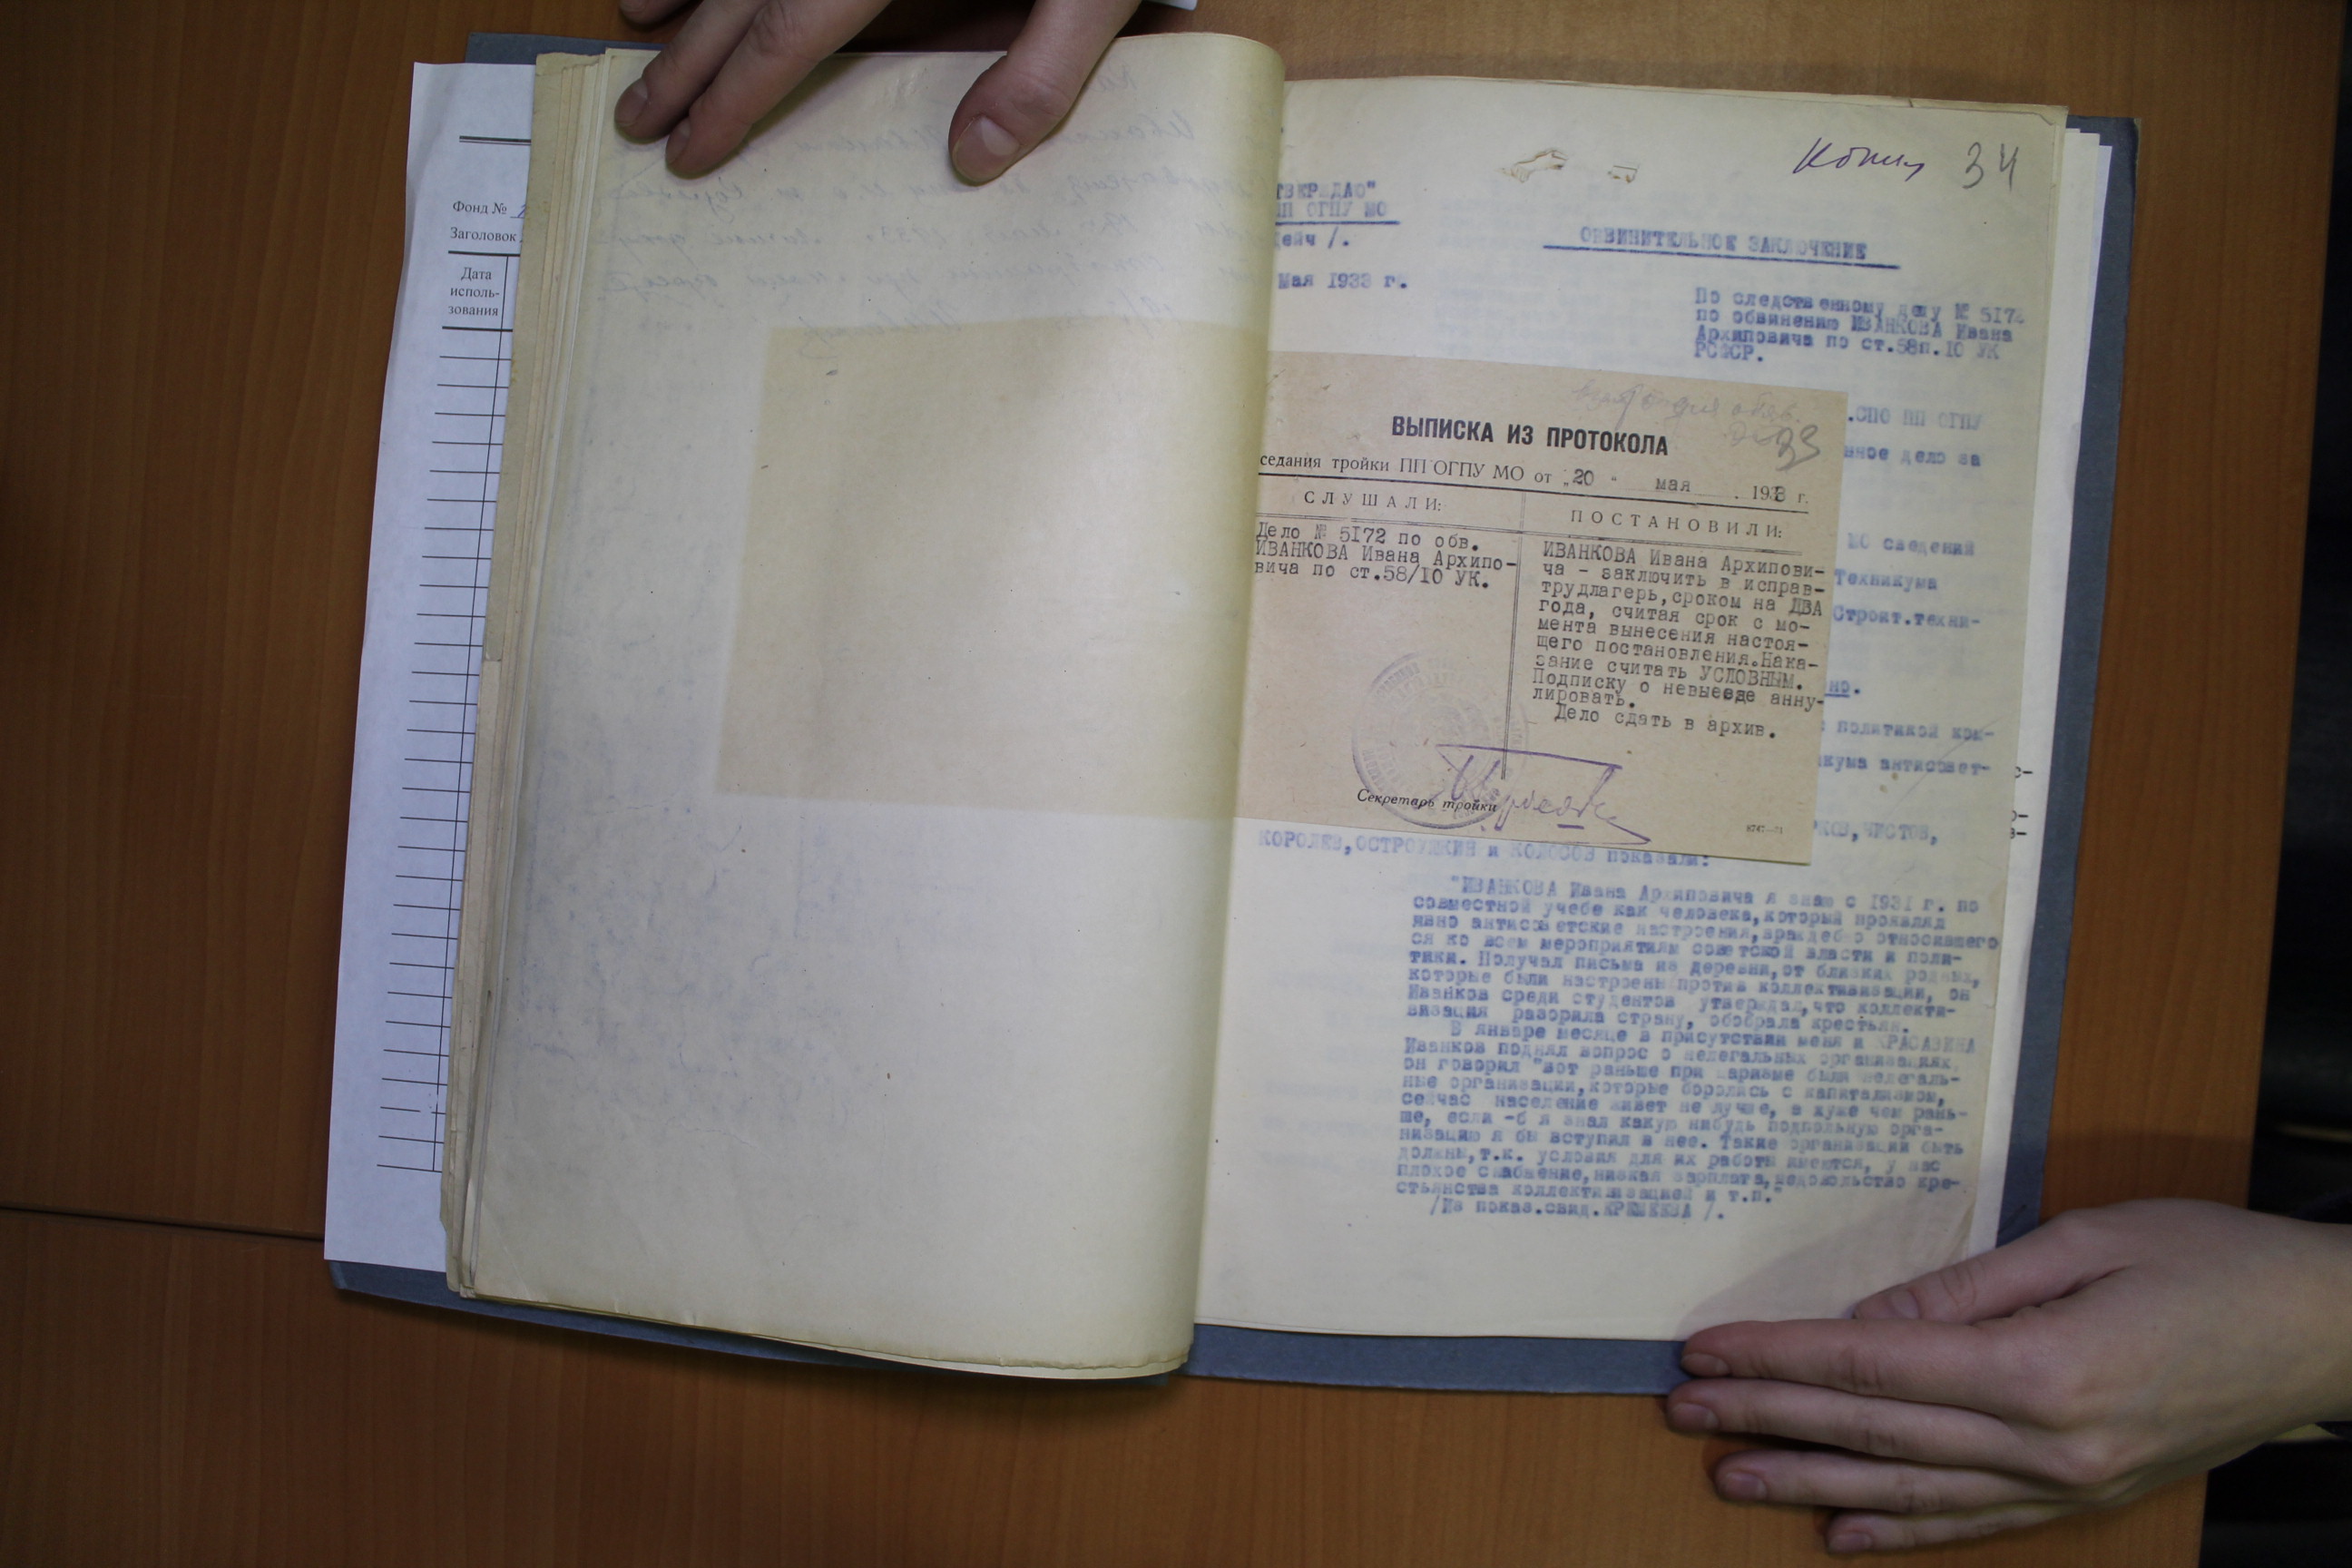 Фонд №
Заголовок
Дата
исполь-
зования
Копия 34
ТВЕРЖДАЮ"
ПП ОГПУ МО
ейч /.
Мая 1933 г.
ОБВИНИТЕЛЬНОЕ ЗАКЛЮЧЕНИЕ
По следственному делу № 5172
по обвинению ИВАНКОВА Ивана
Архиповича по ст.58п.10 УК
РСФСР.
.СПО ПП ОГПУ
нное дело за
МО сведений
Техникума
Строит.техни-
но.
с политикой ком-
икума антисовет-
ков,ЧИСТОВ,
КОРОЛЕВ,ОСТРОУШКИН и КОЛОСОВ показали:
33
ВЫПИСКА ИЗ ПРОТОКОЛА
седания тройки ПП ОГПУ МО от „20 " мая . 1933 г.
СЛУШАЛИ:
Дело № 5172 по обв.
ИВАНКОВА Ивана Архипо-
вича по ст.58/10 УК.
ПОСТАНОВИЛИ:
ИВАНКОВА Ивана Архипови-
ча - заключить в исправ-
трудлагерь,сроком на ДВА
года, считая срок с мо-
мента вынесения настоя-
щего постановления.Нака-
зание считать УСЛОВНЫМ.
Подписку о невыезде анну-
лировать.
Дело сдать в архив.
Секретарь тройки
"ИВАНКОВА Ивана Архиповича я знаю с 1931 г. по
совместной учебе как человека,который проявлял
явно антисоветские настроения,враждебно относившего
ся ко всем мероприятиям советской власти и поли-
тики. Получал письма из деревни,от близких родных,
которые были настроены против коллективизации, он
Иванков среди студентов утверждал,что коллекти-
визация разорила страну, обобрала крестьян.
В январе месяце в присутствии меня и КРАСАВИНА
Иванков поднял вопрос о нелегальных организациях,
он говорил "вот раньше при царизме были нелегаль-
ные организации,которые боролись с капитализмом,
сейчас население живет не лучше, а хуже чем рань-
ше, если -б я знал какую нибудь подпольную орга-
низацию я бы вступил в нее. Такие организации быть
должны,т.к. условия для их работы имеются, у нас
плохое снабжение,низкая зарплата,недовольство кре-
стьянства коллективизацией и т.п."
/Из показ.свид.КРЕМЕЕВА /.